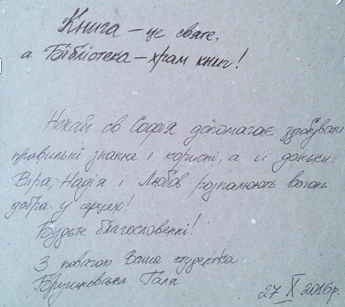 Книга – це святе,
а Бібліотека – храм книг!
Нехай св Софія допомагає здобувати
правильні знання і корисні, а її доньки:
Віра, Надія і Любов розпалюють вогонь
добра у серці!
Будьте благословенні!
З повагою Ваша студентка
Галя
27 X 2016р.